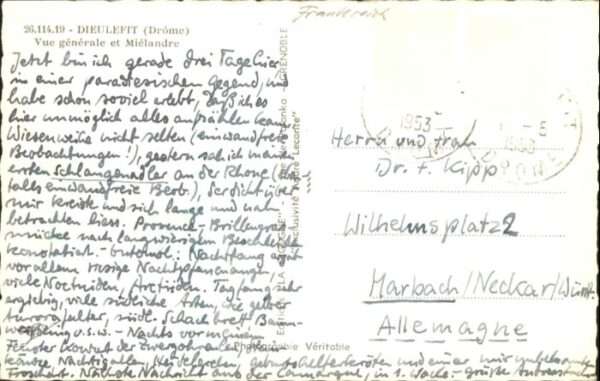 Frankreich
26.114.19 - DIEULEFIT (Drôme)
Vue générale et Miélandre
Jetzt bin ich gerade drei Tage hier
in einer paradiesischen Gegend, und
habe schon soviel erlebt, daß ich es
hier unmöglich alles aufzählen kann.
Wiesenweihe nicht selten (einwandfreie
Beobachtungen!), gestern sah ich meinen
ersten Schlangenadler an der Rhone
falls einwandfreie Beob.), der dicht über
mir kreiste und sich lange und nah
betrachten liess. Provence-Brillengras-
mücke nach langwierigem Beschleichen
konstatiert. - Entomol: Nachtfang
vor allem riesige Nachtpfauenaugen,
viele Noctuiden, Arctiiden. Tagfang sehr
ergiebig, viele südliche Arten, wie gelber
Aurorafalter, südl. Schachbrett, Baum-
weissling u.s.w. - Nachts vor meinem
Fenster Konzert der Zwergohreule,
käuze, Nachtigallen, Heidelerchen, Geburtshelferkröten und einer mir unbekannten
Froschart. Nächste Nachricht aus der Camargue, in 1. Woche.
GRENOBLE
Photographie Véritable
1953
1953
Herrn und Frau
Dr. F. Kipp
Wilhelmsplatz 2
Marbach/Neckar/Württ.
Allemagne